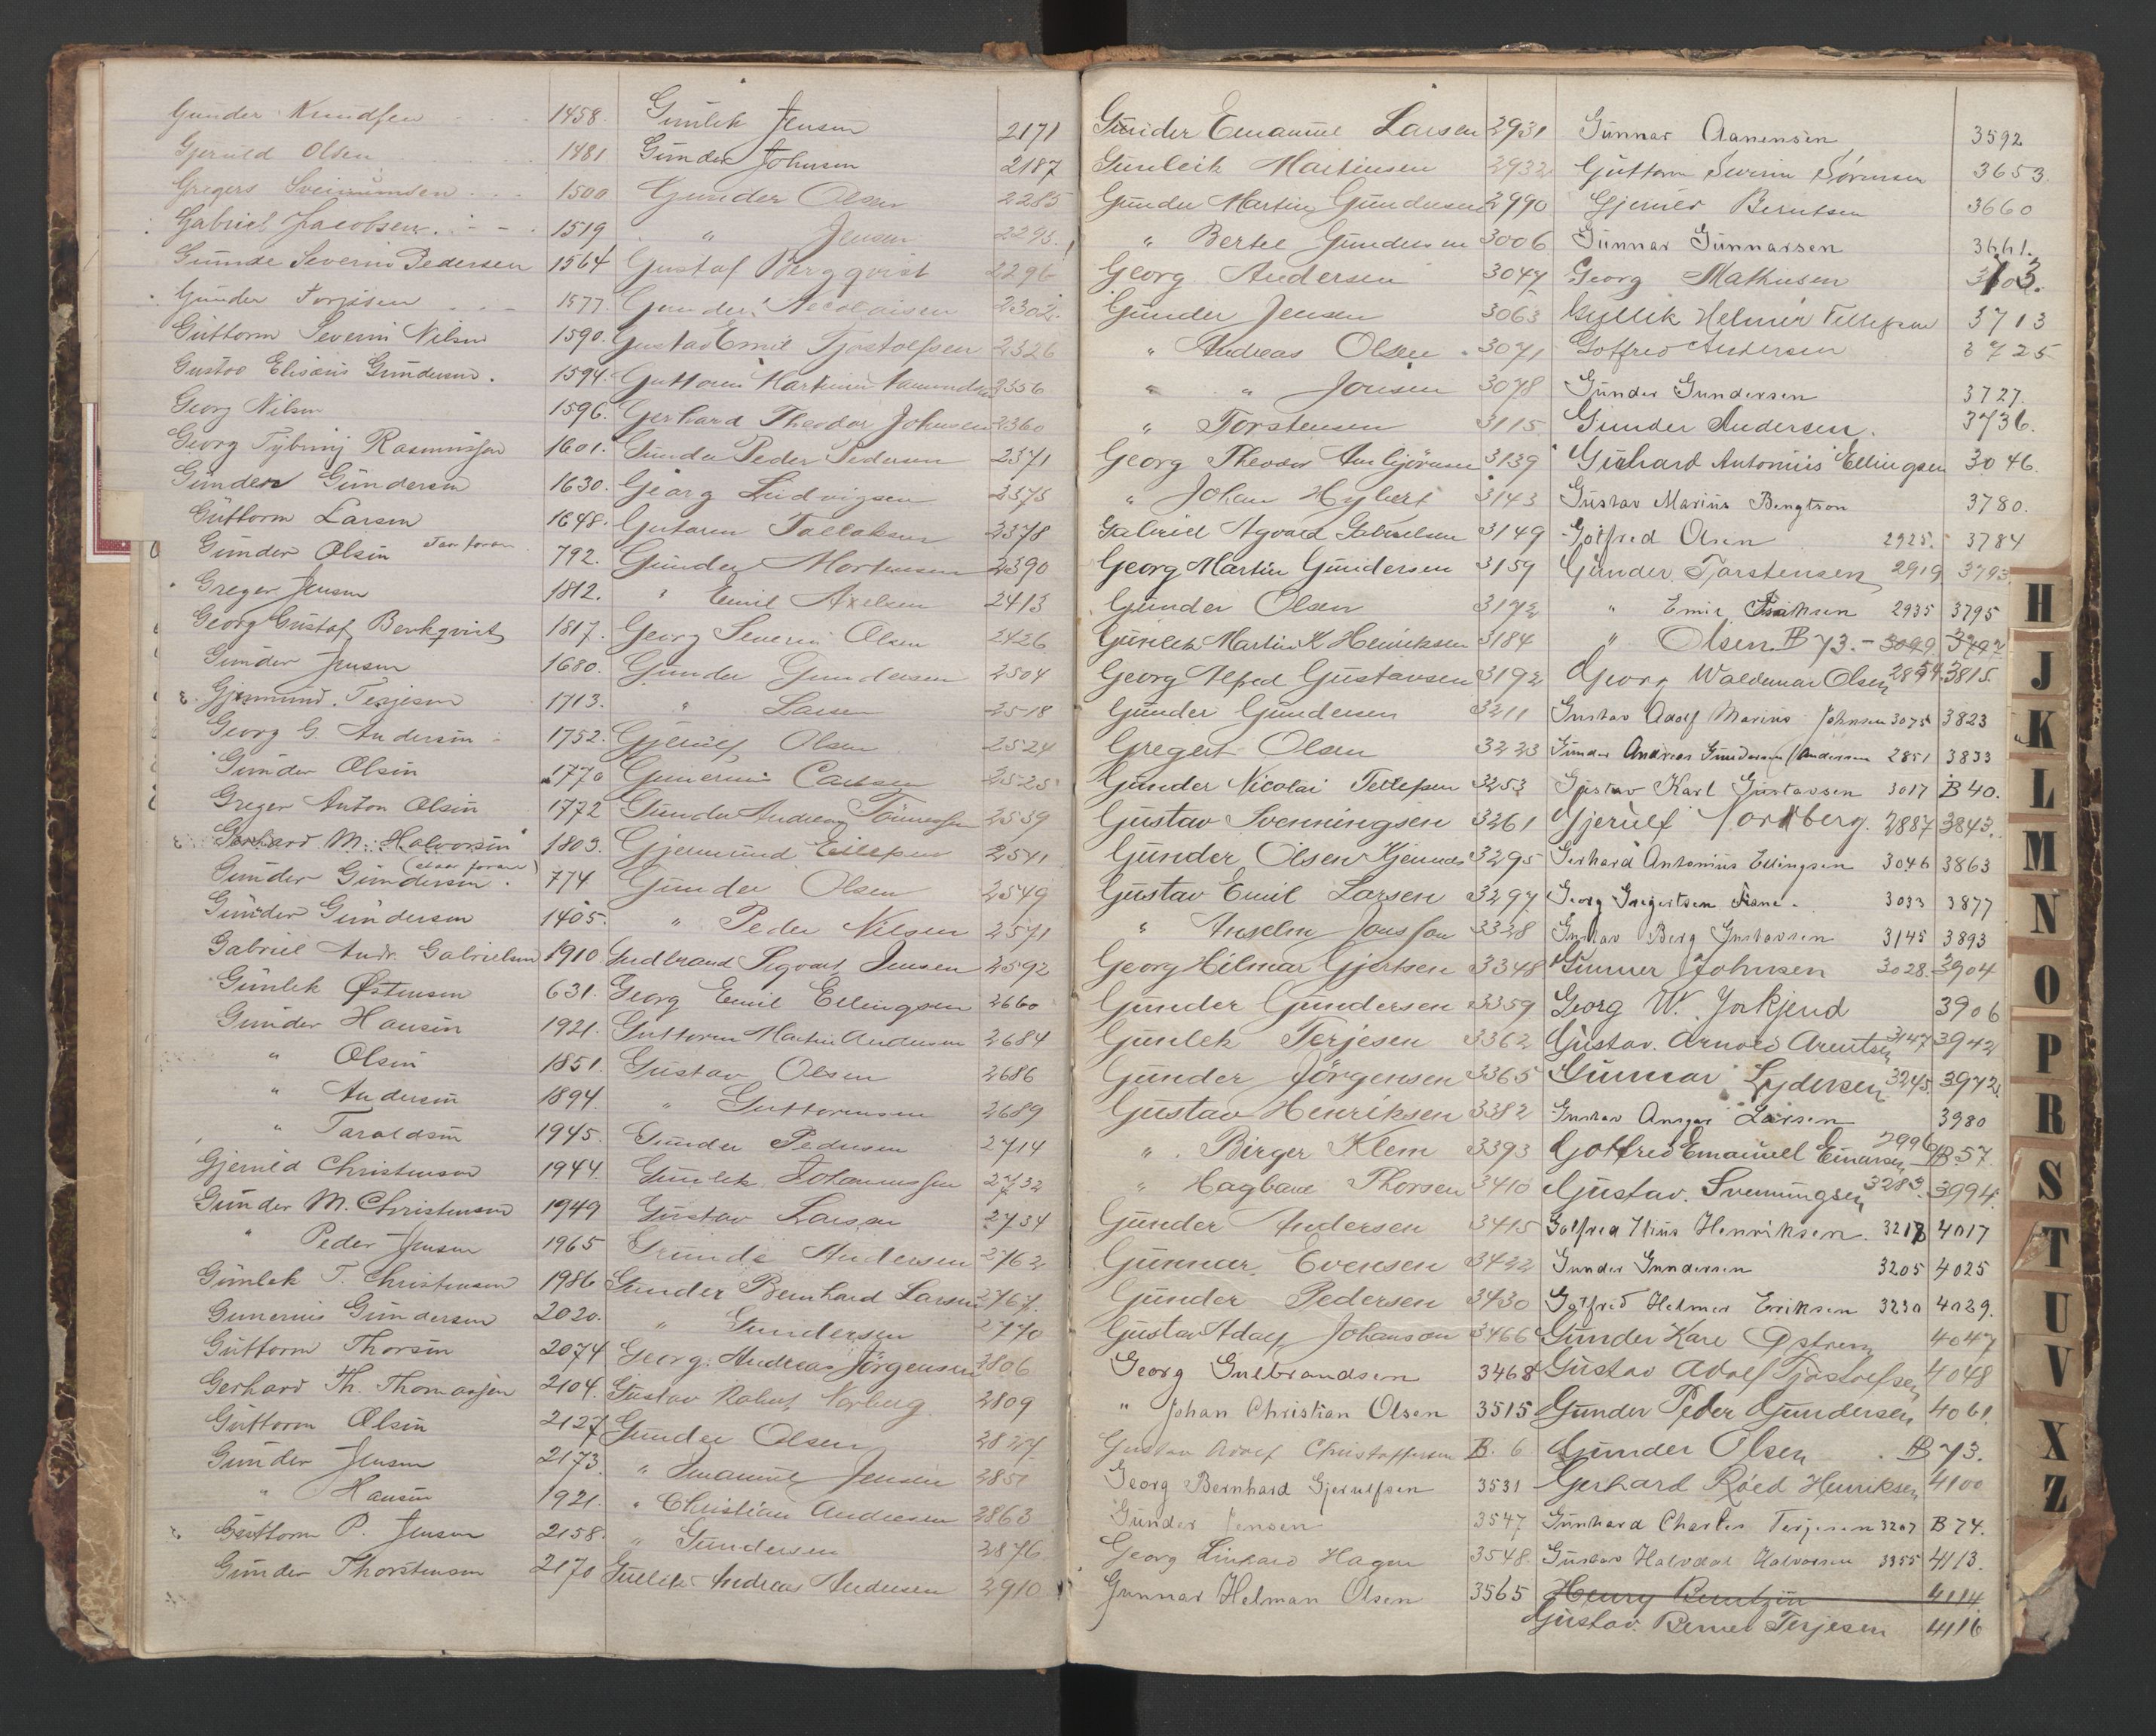 Gunder Knudsen 1458.
Gjeruld Olsen 1481
Gregers Sveinunsen 1500
Gabriel Jacobsen 1519
Gunde Severin Pedersen 1564
Gunder Torjusen 1577.
Guttorm Severin Nilsen 1590.
Gustav Elisæus Gundersen. 1594.
Georg Nilsen 1596.
Georg Tybring Rasmussen 1601.
Gunder Gundersen 1630.
Guttorm Larsen 1648.
Gunder Olsin staar foran 792.
Greger Jensen 1812.
Georg Gustaf Berkqvist 1817.
Gunder Jensen 1680.
Gjermund Terjesen 1713.
Georg G. Andersin 1752.
Gunder Olsin 1770
Greger Anton Olsin 1772
Gerhard M. Halvorsin 1803.
Gunder Gundersen. (staar foran) 774
Gunder Gundersen 1405.
Gabriel Andr. Gabrielsen 1910
Gunlek Østensen 631.
Gunder Hansin 1921.
" Olsin 1851.
" Andersin 1894.
" Taraldsin 1945.
Gjeruld Christensen 1944.
Gunder M. Christensen 1949
" Peder Jensen 1965
Gunlek T. Christensen 1986
Gunerius Gundersen 2020.
Guttorm Thorsin 2074
Gerhard Th. Thomassen 2104.
Guttorm Olsin 2127
Gunder Jensen 2173.
" Hansin 1921.
Guttorm P. Jensen 2158.
Gunder Thorstensen 2170
Gunlek Jensen 2171
Gunder Johnsen 2187
Gunder Olsen 2285
" Jensen 2295.
Gustaf Bergqvist 2296
Gunder Nicolaisen 2302.
Gustav Emil Tjostolfsen 2326
Guttorm Martinius Aamundsen 2356
Gerhard Theodor Johnsen 2360
Gunder Peder Pedersen 2371
Georg Ludvigsen 2375
Gutorm Tallaksen 2378
Gunder Mortensen 2390
" Emil Axelsen 2413
Georg Severin Olsen 2426
Gunder Gundersen 2504
" Larsen 2518
Gjerulf Olsen 2524
Gunerius Carlsen 2525
Gunder Andreas Tönnessen 2539
Gjermund Eilefsen 2541
Gunder Olsen 2549
" Peder Nilsen 2571
Gudbrand Sigvart Jensen 2592
Georg Emil Ellingsen 2660
Guttorm Martin Andersen 2684
Gustav Olsen 2686
" Guttormsen 2689
Gunder Pedersen 2714
Gunlek Johannessen 2732
Gustav Larsen 2734
Gunder Andersen 2762
Gunder Bernhard Larsen 2767.
" Gundersen 2770
Georg Andreas Jörgensen 2806
Gustav Robert Norberg 2809
Gunder Olsen 2827
" Emanuel Jensen 2851
" Christian Andersen 2863
" Gundersen 2876
Gullik Andreas Andersen 2910
Gunder Emanuel Larsen 2931
Gunleik Martinsen 2932
Gunder Martin Gundersen 2990
" Bertel Gundersen 3006
Georg Andersen 3047
Gunder Jensen 3063
" Andreas Olsen 3071
" " Jonsen 3078
" Torstensen 3115
Georg Theodor Ambjörnsen 3139
" Johan Hybert 3143
Gabriel Agvard Gabrielsen 3149
Georg Martin Gundersen 3159
Gunder Olsen 3172
Gunlek Martin K Henriksen 3184
Georg Alfred Gustavsen 3192
Gunder Gundersen 3211
Gregert Olsen 3223
Gunder Nicolai Tellefsen 3253
Gustav Svenningsen 3261
Gunder Olsen Kjenner 3295
Gustav Emil Larsen 3297
" Anselm Jonsson 3328
Georg Hilmar Gjertsen 3348
Gunder Gundersen 3359
Gunlek Terjesen 3362
Gunder Jörgensen 3365
Gustav Henriksen 3382
" Birger Klem 3393
" Hagbart Thorsen 3410
Gunder Andersen 3415
Gunnar Evensen 3422
Gunder Pedersen 3430
Gustav Adolf Johanson 3466
Georg Gulbrandsen 3468
" Johan Christian Olsen 3515
Gustav Adolf Christoffersen B. 6
Georg Bernhard Gjerulfsen 3531
Gunder Jensen 3547
Georg Linhard Hagen 3548.
Gunnar Helman Olsen 3565
Gunnar Aanensen 3592
Guttorm Severin Sörensen 3653
Gjerulf Berntsen 3660
Gunnar Gunnarsen 3661.
Georg Mathisen
Gullik Helmer Tellefsen 3713
Gotfred Andersen 3725
Gunder Gundersen 3727.
Gunder Andersen. 3736.
Gerhard Antonius Ellingsen 3046.
Gustav Marius Bengtson 3780.
Gotfred Olsen 2925. 3784
Gunder Torstensen 2919 3793
" Emil Isaksen 2935 3795
" Olsen B 73. - 3099 3797
Georg Waldemar Olsen 2854 3815.
Gustav Adolf Marius Johnsen 3075 3823
Gunder Andreas Gundersen / Andersen 2851 3833
Gustav Karl Gustavsen 3017 B 40.
Gjerulf Nordberg. 2887 3843.
Gerhard Antonius Ellingsen 3046 3863
Georg Gregertsen Fiane. 3033 3877
Gustav Berg Gustavsen 3145 3893
Gunner Johnsen 3028. 3904
Georg W. Yorkjend 3906
Gustav. Arnold Arentsen 3147 3942
Gunnar Lydersen 3245. 3972.
Gustav Ansgar Larsen 3980
Gotfred Emanuel Einarsen 2996 B 57.
Gustav. Svenningsen 3283. 3994.
Gotfred Nius Henriksen. 3218 4017
Gunder Gundersen 3205 4025
Gotfred Helmer Eriksen 3230 4029.
Gunder Kare Ostrem 4047
Gustav Adolf Tjostolfsen 4048
Gunder Peder Gundersen 4061
Gunder Olsen B 73.
Gerhard Röed Henriksen 4100
Gunhard Charles Terjesen 3207 B 74.
Gustav Halvdal Halvorsen 3355 4113.
Henry Berntzen 4114
Gustav. Berner Terjesen 4116
H
J
K
L
M
N
O
P
R
S
T
U
V
X
Z